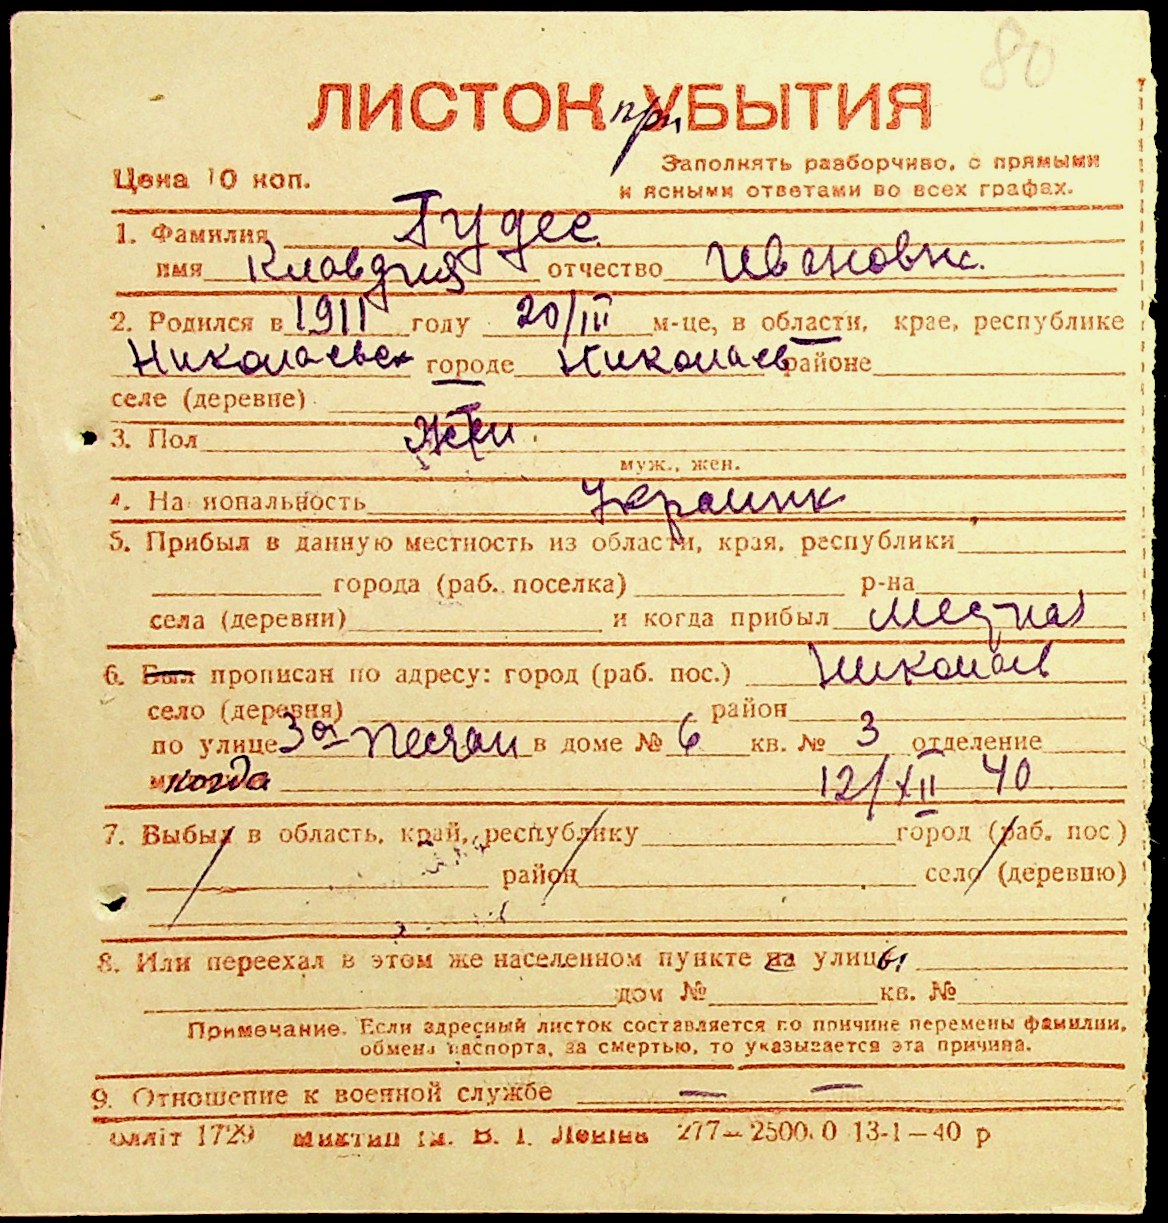 80
ЛИСТОК при УБЫТИЯ
Цена 10 коп.
Заполнять разборчиво, с прямыми
и ясными ответами во всех графах.
1. Фамилия Гудсе
имя Клавдия отчество Ивановн.
2. Родился в 1911 году 20/III м-це, в области, крае, республике
Николаевск городе Николаев районе
селе (деревне)
3. Пол жен
муж., жен.
4. На иональность Украинк
5. Прибыл в данную местность из области, края, республики
города (раб. поселка) р-на
села (деревни) и когда прибыл Местная
6. Был прописан по адресу: город (раб. пос.) Николаев
село (деревня) район
по улице 3ая Песчан в доме № 6 кв. № 3 отделение
когда 12/XII 40
7. Выбыл в область, край, республику город (раб. пос)
район село (деревню)
8. Или переехал в этом же населенном пункте на улицы
дом № кв. №
Примечание. Если адресный листок составляется по причине перемены фамилии,
обмена паспорта, за смертью, то указывается эта причина.
9. Отношение к военной службе — —
Оплліт 1729 ім. В. І. Леніна 277—2500.0 13-1—40 р